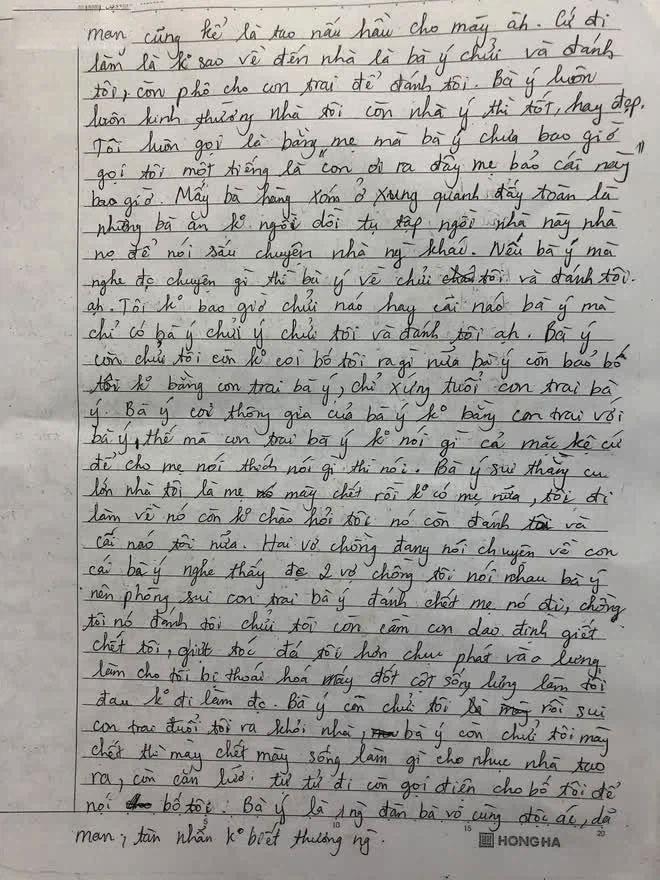 man cũng kể là tao nấu hầu cho mày àh. Cứ đi
làm là k° sao về đến nhà là bà ý chửi và đánh
tôi, còn phô cho con trai để đánh tôi. Bà ý luôn
luôn kinh thường nhà tôi còn nhà ý thì tốt, hay đẹp.
Tôi luôn gọi là bằng mẹ mà bà ý chưa bao giờ
gọi tôi một tiếng là "con ơi ra đây mẹ bảo cái này"
bao giờ. Mấy bà hàng xóm ở xung quanh đấy toàn là
những bà ăn k° ngồi dồi tụ tập ngồi nhà này nhà
nọ để nói sấu chuyện nhà ng` khác. Nếu bà ý mà
nghe đc chuyện gì thì bà ý về chửi tôi và đánh tôi.
ah. Tôi k° bao giờ chửi náo hay cãi náo bà ý mà
chỉ có bà ý chửi ý chửi tôi và đánh tôi ah. Bà ý
còn chửi tôi còn k° coi bố tôi ra gì nữa bà ý còn bảo bố
tôi k° bằng con trai bà ý, chỉ xứng tuổi con trai bà
ý. Bà ý coi thông gia của bà ý k° bằng con trai với
bà ý, thế mà con trai bà ý k° nói gì cả mặc kệ cứ
để cho mẹ nói thích nói gì thì nói. Bà ý sui thằng cu
lớn nhà tôi là mẹ mày chết rồi k° có mẹ nữa, tôi đi
làm về nó còn k° chào hỏi tôi nó còn đánh và
cãi náo tôi nữa. Hai vợ chồng đang nói chuyện về con
cái bà ý nghe thấy đc 2 vợ chồng tôi nói nhau bà ý
nên phòng sui con trai bà ý đánh chết mẹ nó đi, chồng
tôi nó đánh tôi chửi tôi còn cầm con dao định giết
chết tôi, giựt tóc đá tôi hơn chục phát vào lưng
làm cho tôi bị thoái hoá mấy đốt cột sống lưng làm tôi
đau k° đi làm đc. Bà ý còn chửi tôi rồi sui
con trai đuổi tôi ra khỏi nhà, bà ý còn chửi tôi mày
chết thì mày chết mày sống làm gì cho nhục nhà tao
ra, con cắn lưỡi tự tử đi còn gọi điện cho bố tôi để
nói bố tôi. Bà ý là 1 ng` đàn bà vô cùng độc ác, dã
man, tàn nhẫn k° biết thương ng`.
5 10 15 20
HONGHA